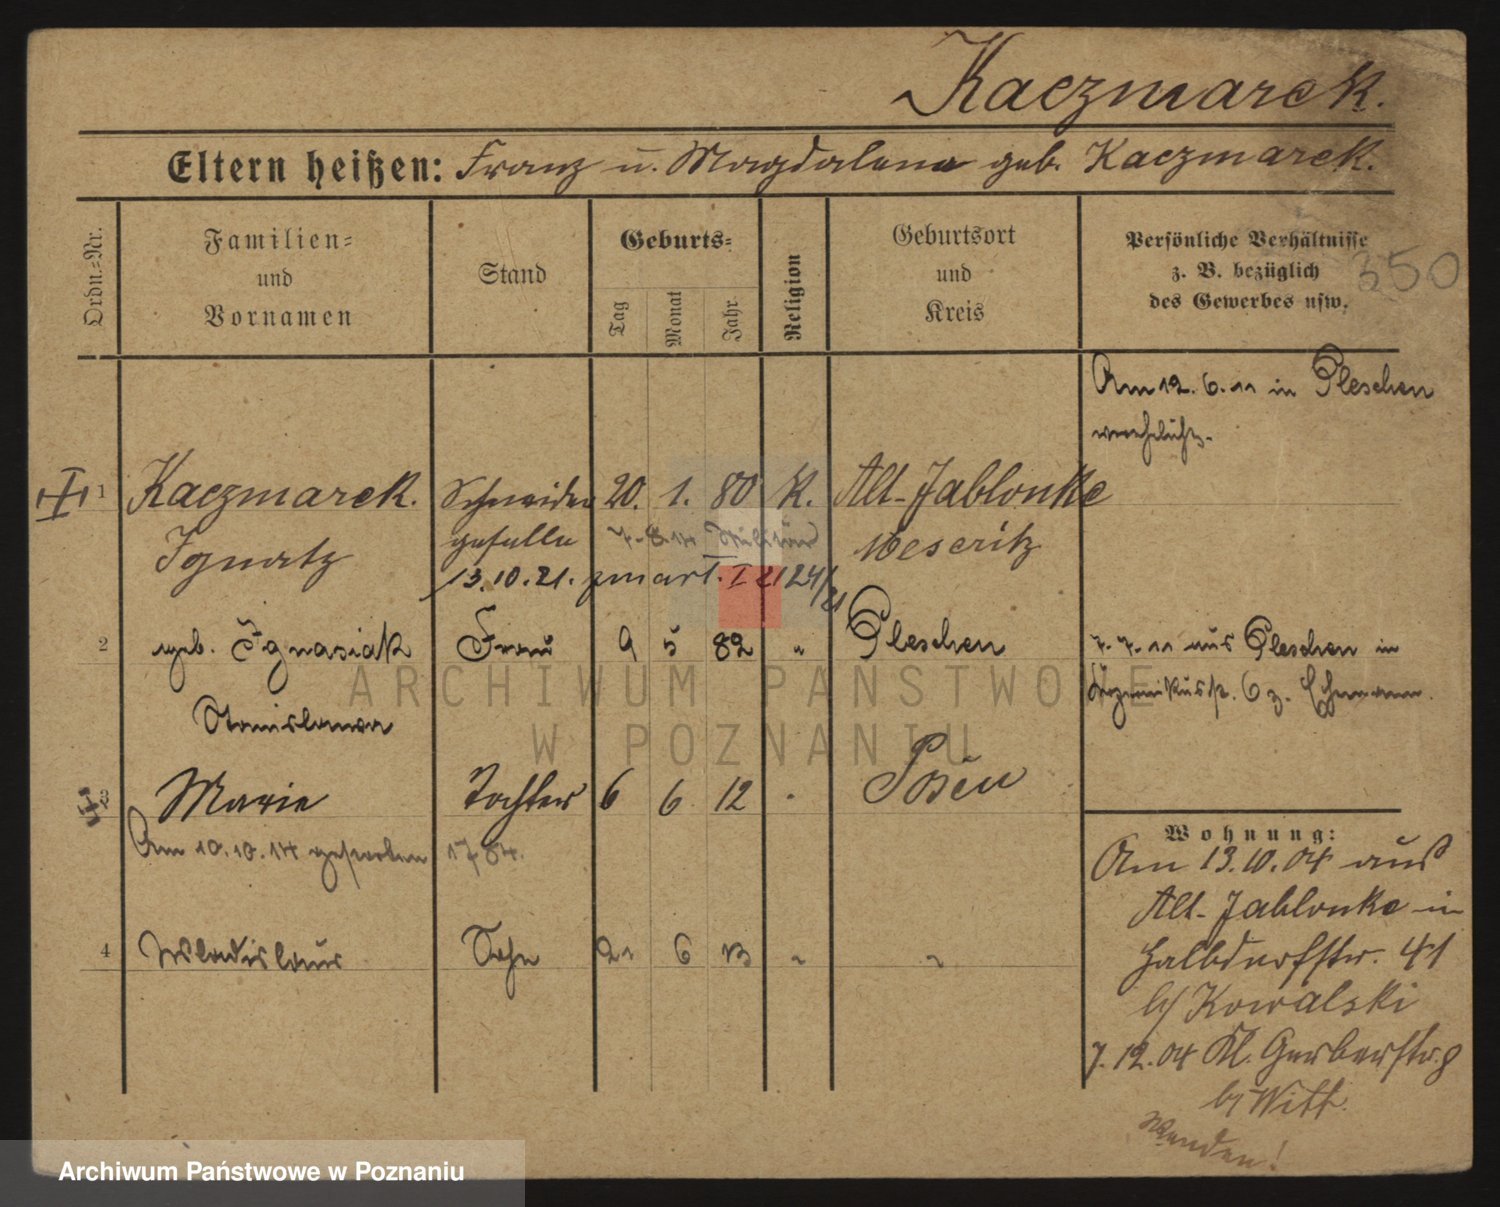 Kaczmarek.
Eltern heißen: Franz u. Magdalena geb. Kaczmarek.
Ordn.-Nr.
Familien-
und
Vornamen
Stand
Geburts-
Tag
Monat
Jahr
Religion
Geburtsort
und
Kreis
Persönliche Verhältnisse
z. B. bezüglich
des Gewerbes usw.
350
Am 12. 6. 11 in Pleschen
verehelicht.
1 Kaczmarek. Schneider 20. 1. 80 K. Alt-Jablonke
Ignatz geselle 7.8.14 Militär Meseritz
13.10.21. 
2 geb. Ignasiak Frau 9 5 82 " Pleschen 7.7.11 aus Pleschen in
6 z.
Stanislawa
3 Marie Tochter 6 6 12 " Posen
Am 10.10.14 gestorben 1784.
4 Wladislaus Sohn 21 6 13 " "
Wohnung:
Am 13.10.04 aus
Alt-Jablonke in
Halbdorfstr. 41
b/ Kowalski
7.12.04 Kl. Gerberstr. 8
b/ Witt.
Wenden!
ARCHIWUM PAŃSTWOWE
W POZNANIU
Archiwum Państwowe w Poznaniu